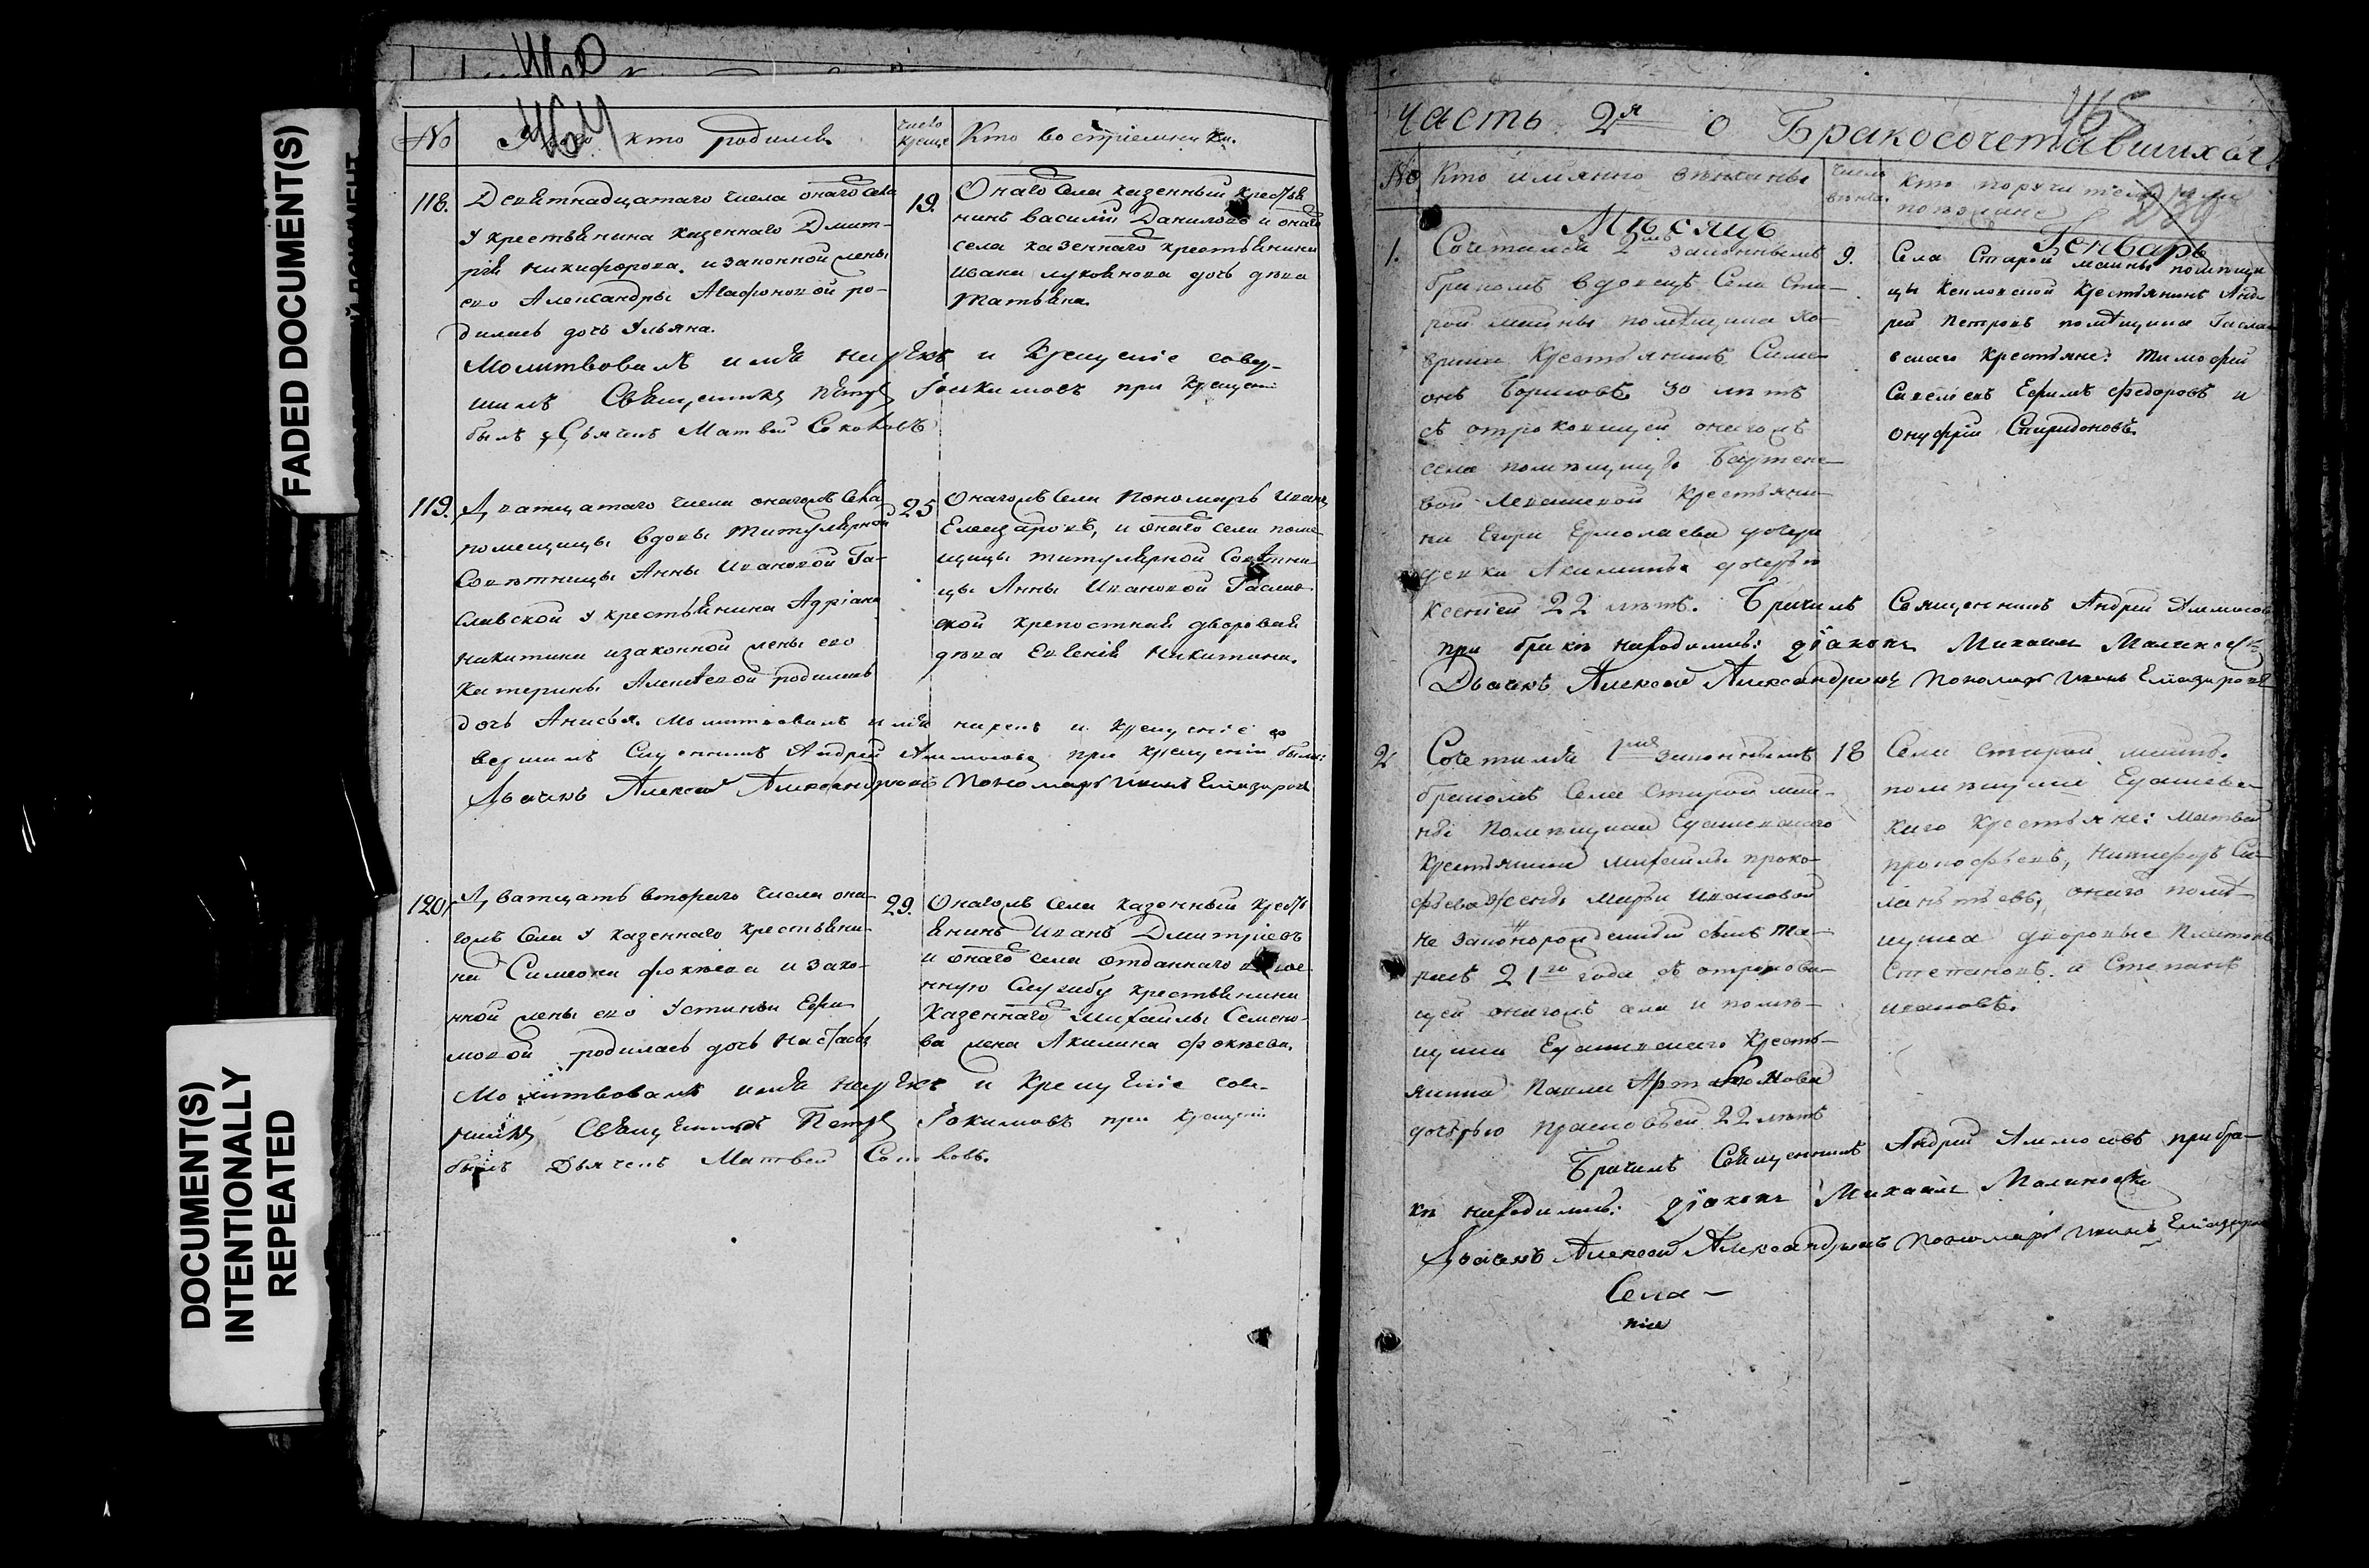 FADED DOCUMENT(S)
DOCUMENT(S)
INTENTIONALLY
REPEATED
464
№
кто родился
число креще
Кто восприемники.
118.
Девятнадцатаго числа онаго села
у крестьянина казеннаго Дмит-
рія Никифорова. и законной жены
его Александры Агафоновой ро-
дилась дочь Ульяна.
19.
Онаго села казенный крестья
нинъ Василій Даниловъ и онаго
села казеннаго крестьянина
Ивана Лукоянова дочь дѣвка
Татьяна.
Молитвовалъ имя нарекъ и Крещеніе совер-
шилъ Священникъ Петръ Іоакимовъ при Крещеніи
былъ Дьячекъ Матвей Соколовъ
119.
Дватцатаго числа онагожъ села
помещицы вдовы титулярной
Совѣтницы Анны Ивановой Га-
славской у крестьянина Адріана
Никитина и законной жены его
Катерины Алексѣевой родилась
25
Онагожъ Села Пономарь Иванъ
Елеазаровъ, и онаго села поме
щицы титулярной Совѣтни-
цы Анны Ивановой Гаслав
ской крепостная дворовая
дѣвка Евгенія Никитина.
дочь Анисья. Молитвовалъ имя нарекъ и Крещеніе со
вершилъ Священникъ Андрей Алмосовъ при крещеніи были:
Дьячекъ Алексей Александровъ Пономарь Иванъ Елиазаровъ
120.
Дватцать втораго числа она-
гожъ Села у казеннаго крестьяни-
на Симеона Фоктева и зако-
нной жены его Устиньи Ефи
мовой родилась дочь Настасья
29.
Онагожъ Села казенный кресть
янинъ Иванъ Дмитріевъ
и онаго села отданнаго в вое-
нную Службу крестьянина
Казеннаго Михайлы Семено-
ва жена Акилина Фоктева.
Молитвовалъ имя нарекъ и Крещеніе сове-
Священникъ Петръ Іоакимовъ при крещеніи
былъ Дьячекъ Матвей Соколовъ.
465
Часть 2я о Бракосочетавшихся
№
Кто имянно вѣнчаны
число вѣнча.
Кто поручители или
поѣзжане
Мѣсяцъ Генварь
1.
Сочетался 2мъ законнымъ
бракомъ вдовецъ Села Ста-
рой Майны помѣщика
крестьянинъ Симе
онъ Борисовъ 30 лѣтъ
съ отроковицей онагожъ
села помѣщицы
крестьяни-
на Егора Ермолаева дочери
дочерью
Ксеніей 22 лѣтъ.
9.
Села Старой Майны помѣщи
цы Крестьянинъ Анд
рей Петровъ помѣщика Гаслав
скаго Крестьяне: Тимофей
Савельевъ Ефимъ Федоровъ и
Онуфрій Спиридоновъ.
Брачилъ Священникъ Андрей Алмосовъ
при бракѣ находились: діаконъ Михаилъ Малиновскій
Дьячекъ Алексей Александровъ Пономарь Иванъ Елиазаровъ
2
Сочетался 1мъ законнымъ
бракомъ Села Старой Май-
ны Помѣщика
Крестьянина Михайлы Проко-
фьева жены Марьи Ивановой
не законорожденный сынъ
21го года съ отрокови-
цей онагожъ села и помѣ-
щика Кресть-
янина Павла Артамонова
дочерью Прасковьей 22 лѣтъ
18
Села Старой Майны
помѣщика
Крестьяне: Матвей
Прокофьевъ, Никифоръ Си-
лантьевъ, онаго помѣ-
щика дворовые Платонъ
Степановъ. и Степанъ
Ивановъ.
Брачилъ Священникъ Андрей Алмосовъ при бра-
кѣ находились: діаконъ Михаилъ Малиновскій
Дьячекъ Алексей Александровъ Пономарь Иванъ Елиазаровъ
Села -